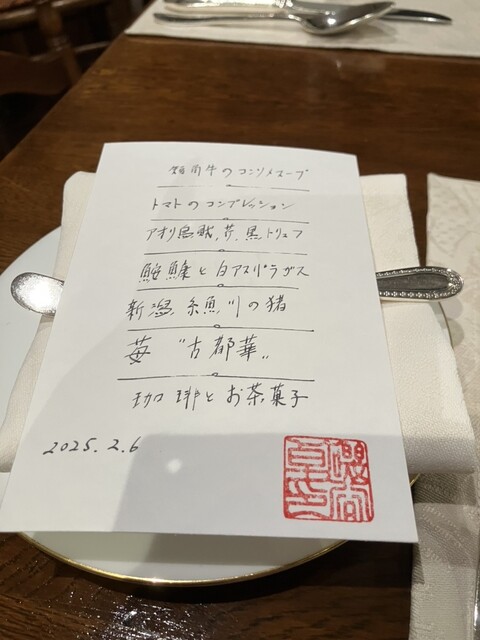 牛のコンソメスープ
トマトのコンプレッション
アオリ烏賊,芹,黒トリュフ
鮟鱇と白アスパラガス
新潟 糸魚川の猪
苺 "古都華"
珈琲とお茶菓子
2025.2.6